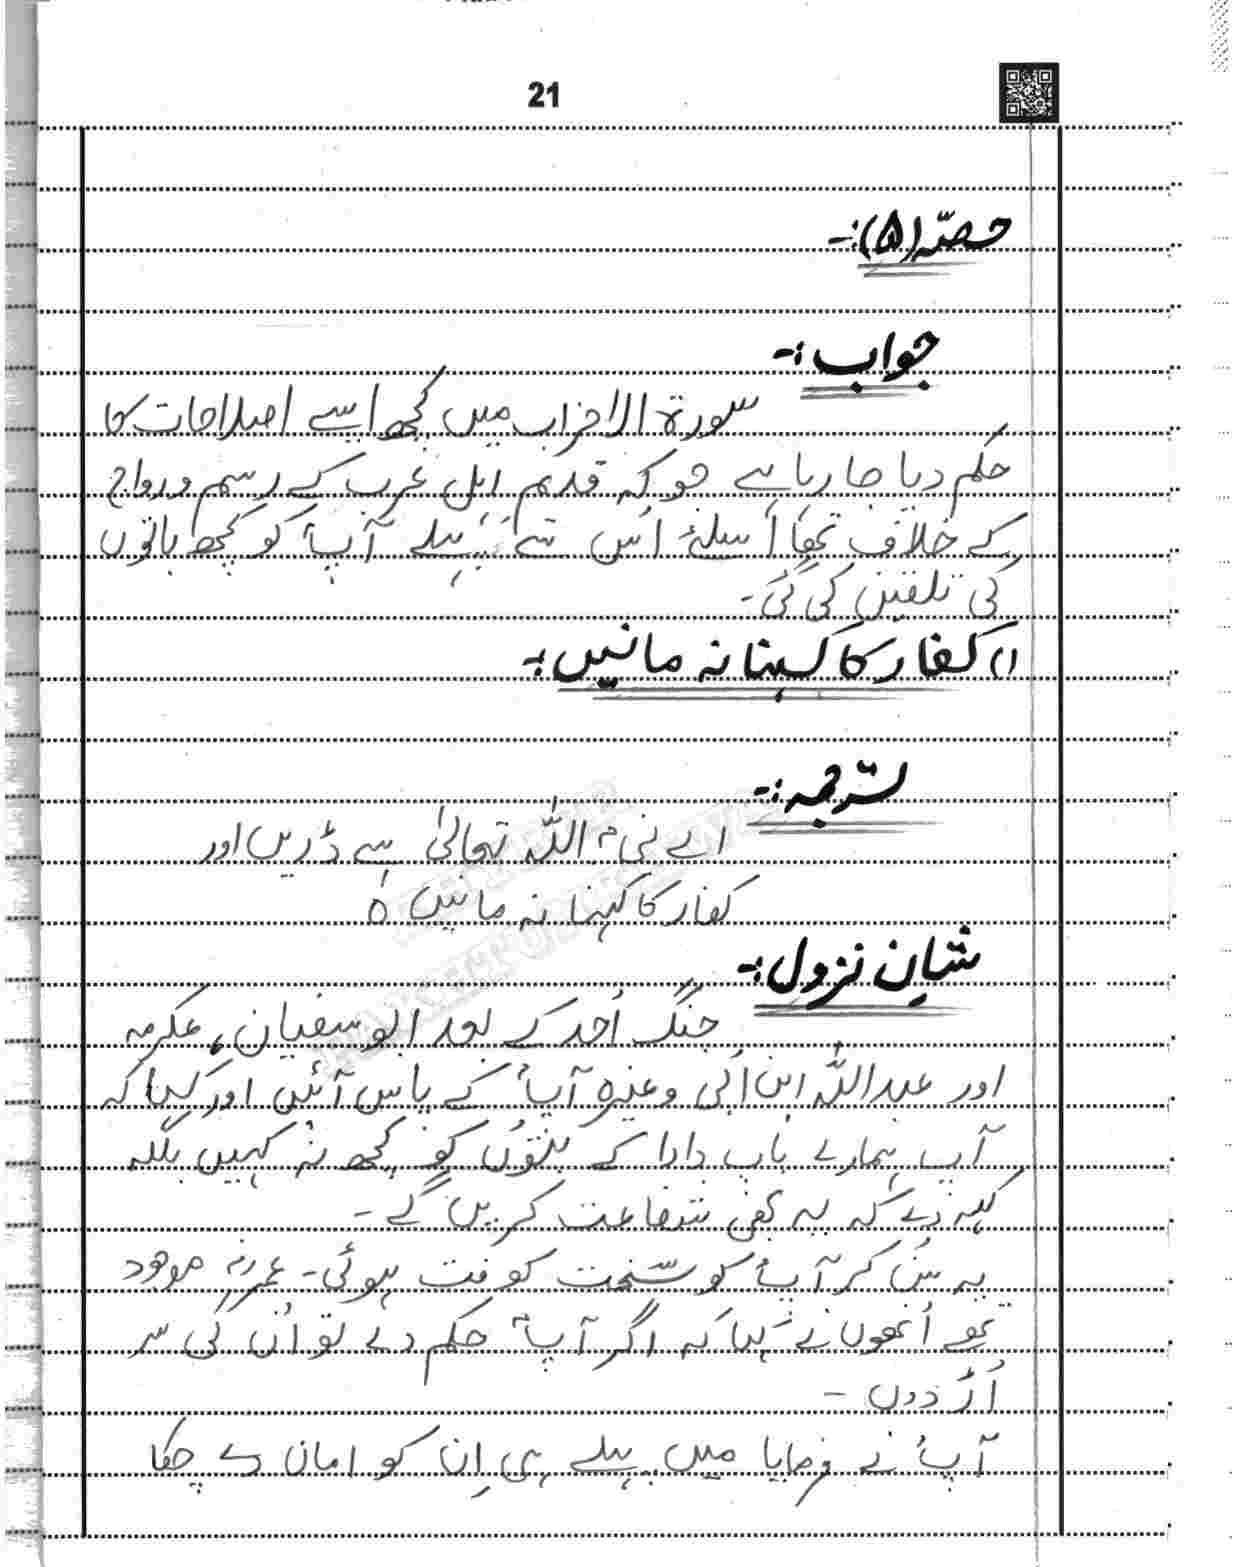 21
حصّہ (۵):-
جواب :-
سورۃ الاحزاب میں کچھ ایسے اصلاحات کا
حکم دیا جا رہا ہے جو کہ قدیم اہل عرب کے رسم و رواج
کے خلاف تھا اسلئے اس سے پہلے آپؐ کو کچھ باتوں
کی تلقین کی گئی۔
۱) کفار کا کہنا نہ مانیں :-
ترجمہ :-
اے نبیؐ اللہ تعالیٰ سے ڈریں اور
کفار کا کہنا نہ مانیں ۵
شانِ نزول :-
جنگ اُحد کے بعد ابو سفیان، عکرمہ
اور عبداللہ ابن اُبی وغیرہ آپؐ کے پاس آئیں اور کہا کہ
آپ ہمارے باپ دادا کے بتوں کو کچھ نہ کہیں بلکہ
کہہ دے کہ یہ بھی شفاعت کریں گے۔
یہ سُن کر آپؐ کو سخت کوفت ہوئی۔ عمرؓ موجود
تھے اُنھوں نے کہا کہ اگر آپؐ حکم دے تو اُن کی سر
اُڑ دوں -
آپؐ نے فرمایا میں پہلے ہی اِن کو امان دے چکا